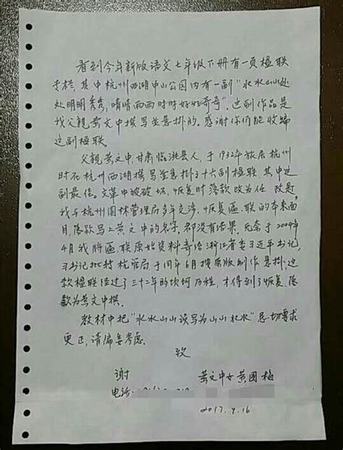 看到今年新版语文七年级下册有一页楹联
于栏,其中杭州西湖中山公园内有一副"水水山山处
处明明秀秀,晴晴雨雨时时好好奇奇",这副作品是
我父亲黄文中撰写并悬挂的。感谢你们能收编
这副楹联。
父亲黄文中,甘肃临洮县人,于1932年旅居杭州
时在杭州西湖撰写并悬挂三十六副楹联,其中这
副最佳。文革中被破坏,恢复时落款改为佚
我与杭州园林管理局多年交涉,恢复匾联的本来面
目落款写上黄文中的名字,都没有结果,无奈于2004年
4月我将匾联原始资料寄给浙江省委习近平书记,
习书记批转杭管局于同年6月按原版制作悬挂,这
款楹联经过了三十年的坎坷历程,才得到了恢复落
款为黄文中撰。
教材中把"水水山山误写为山山水水"恳切要求
更正,请编委考虑。
致
谢
黄文中女黄国梅
电话:
2017.4.16